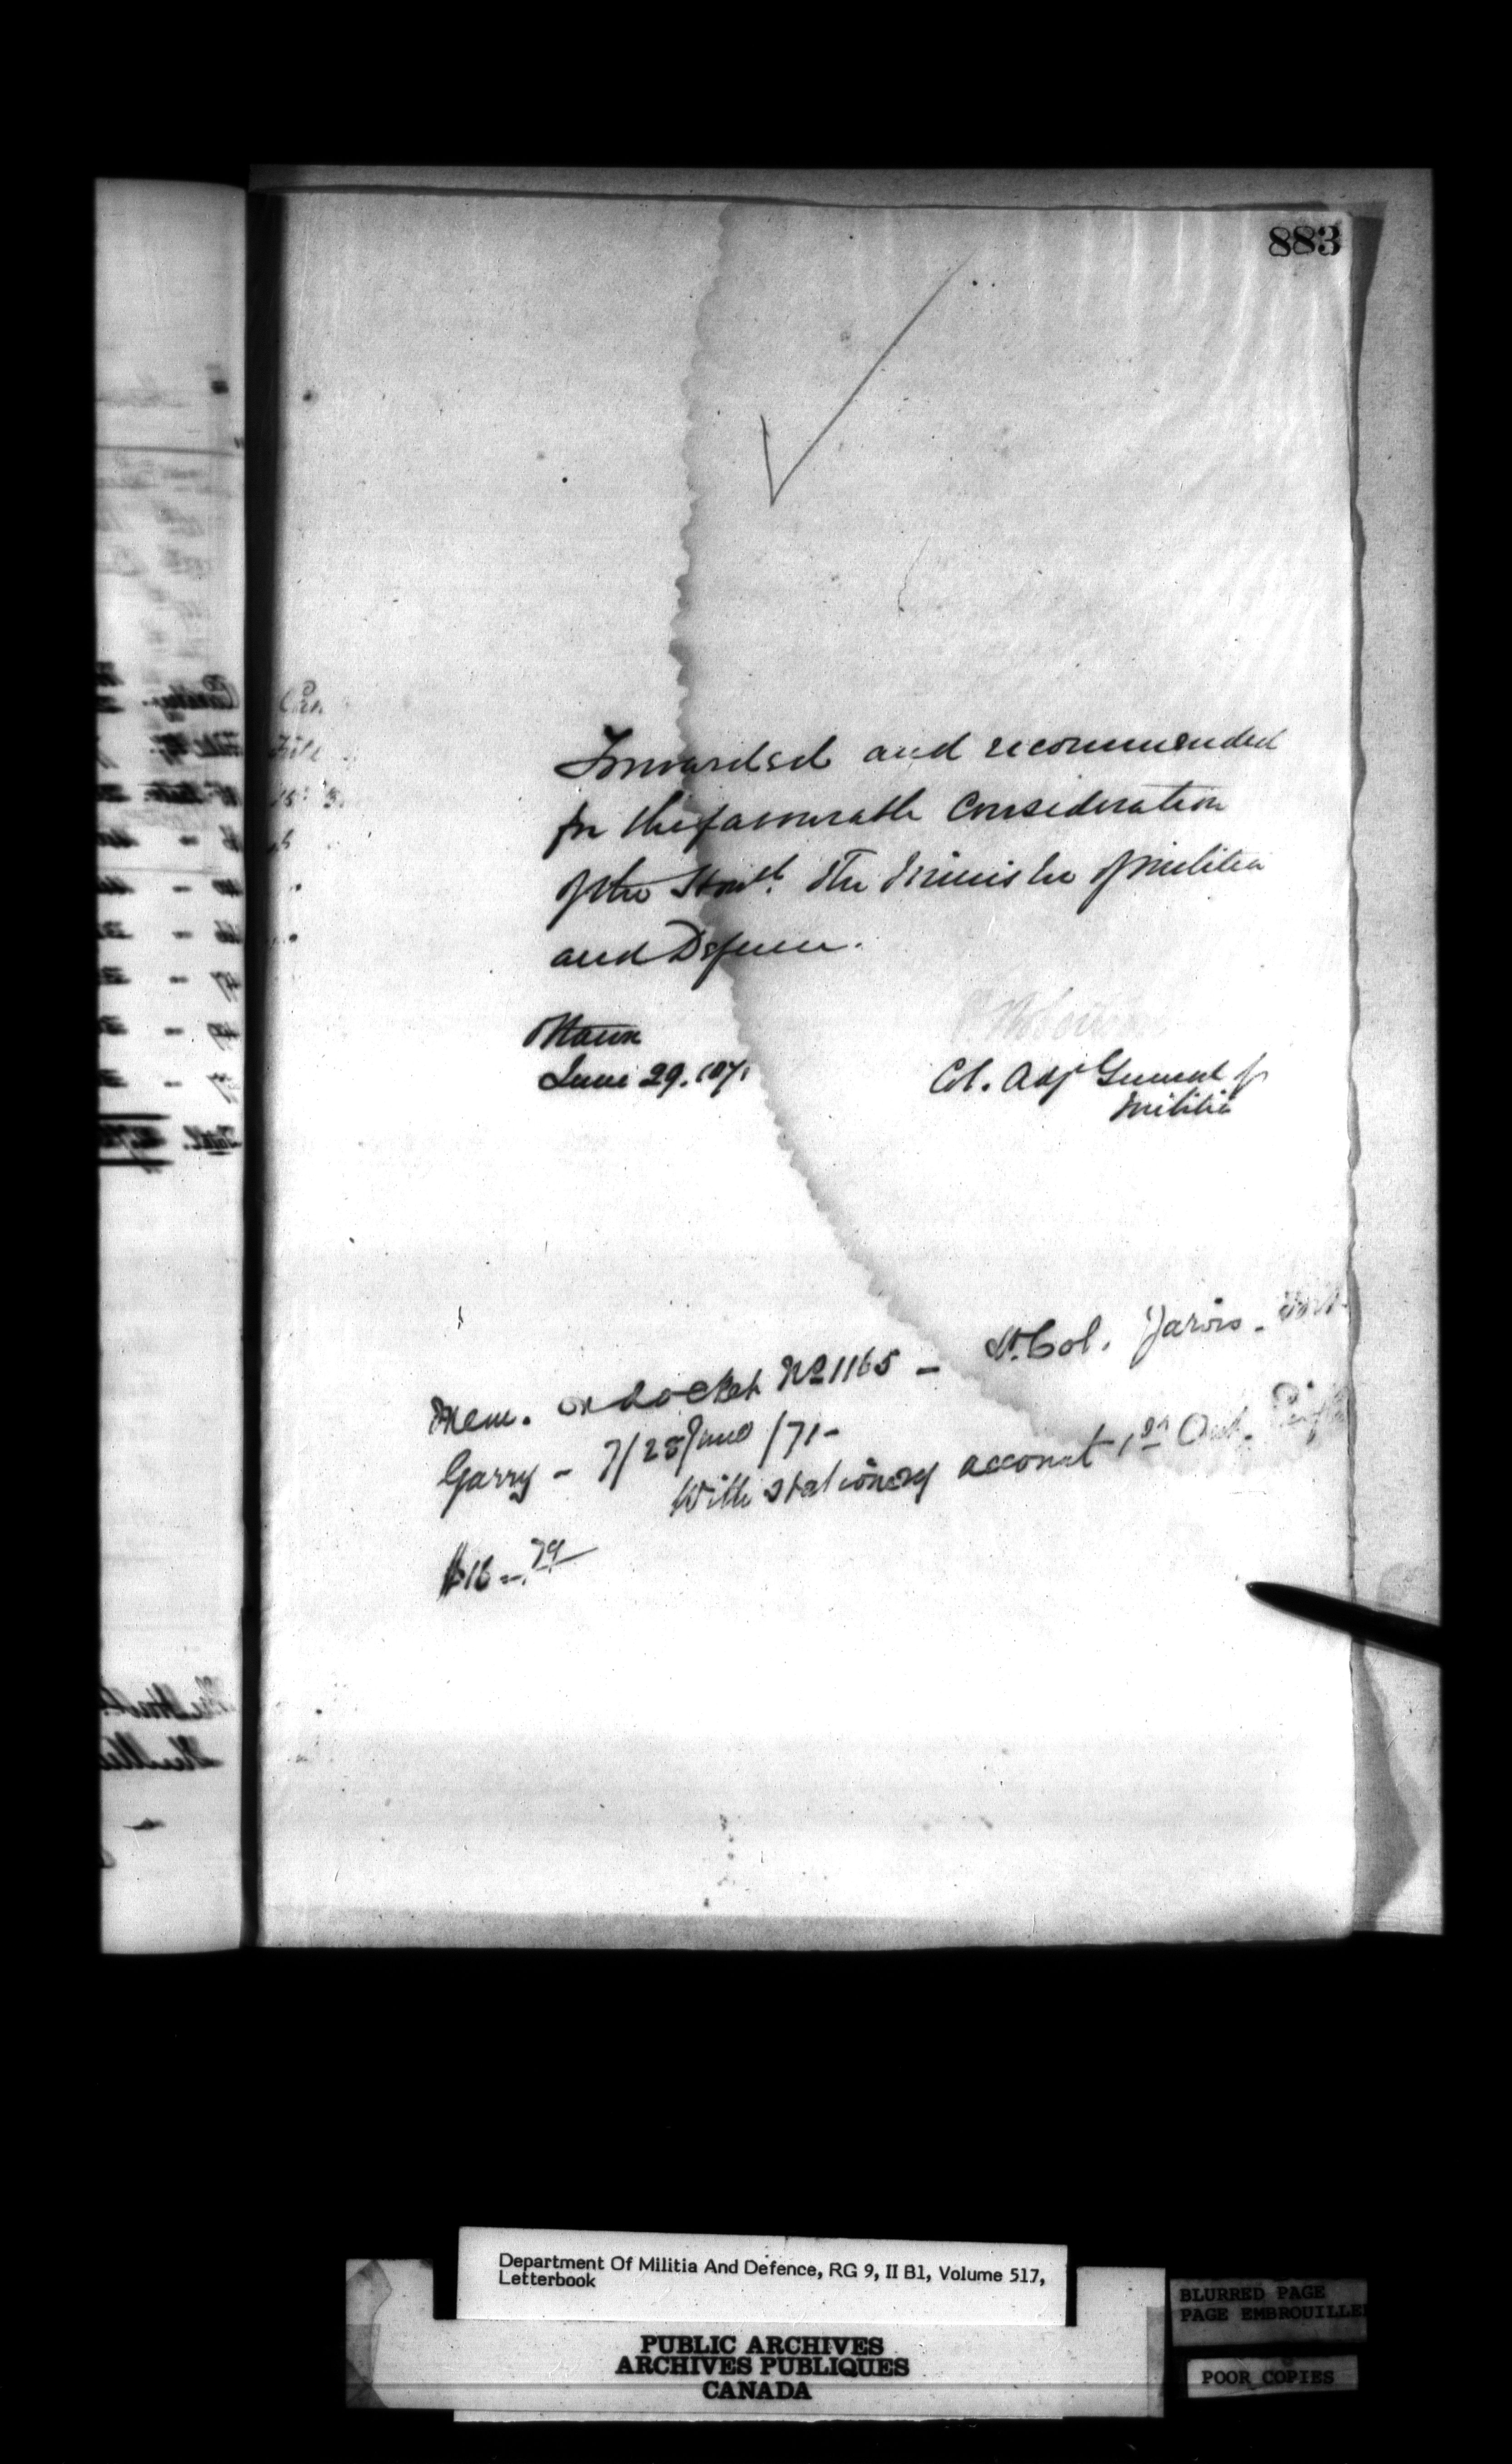 883
Forwarded and recommended
for the favourable Consideration
of the Honbl. The Minister of Militia
and Defence.
Ottawa
June 29. 1871
Col. Adjt General of
Militia
Mem. on Docket No 1165 - Lt. Col. Jarvis - Fort
Garry - 7/28 June /71 -
With stationery account 1st Ont. Rifles
$18 -. 79
Department Of Militia And Defence, RG 9, II B1, Volume 517,
Letterbook
PUBLIC ARCHIVES
ARCHIVES PUBLIQUES
CANADA
BLURRED PAGE
PAGE EMBROUILLE
POOR COPIES